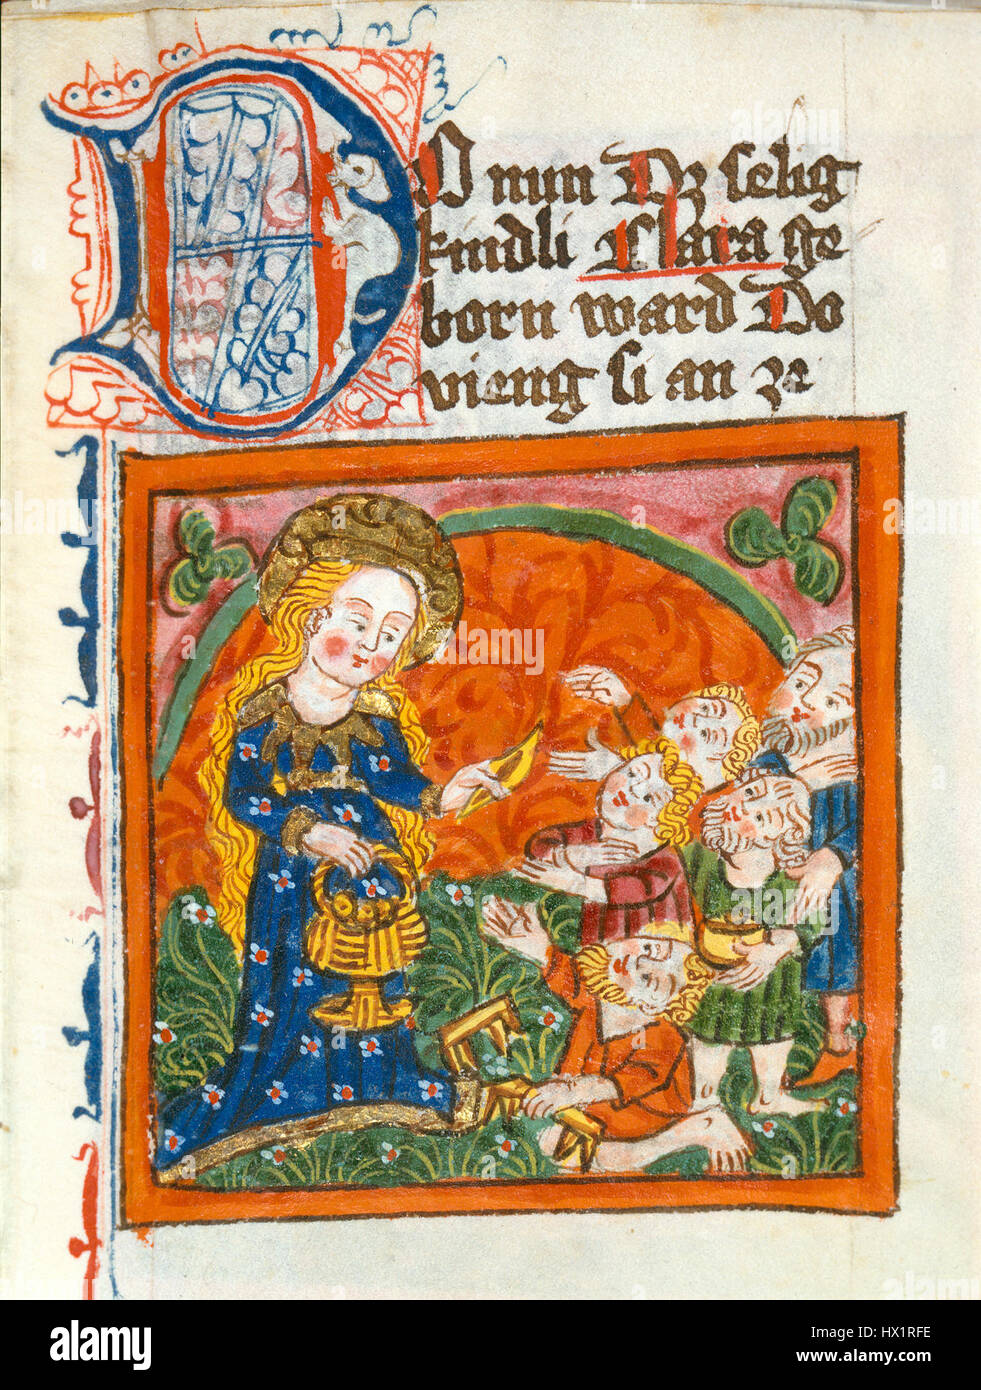 DO nun Dz selig
kindli Clara ge
born ward Do
vieng si an ze
alamy
Image ID: HX1RFE
www.alamy.com